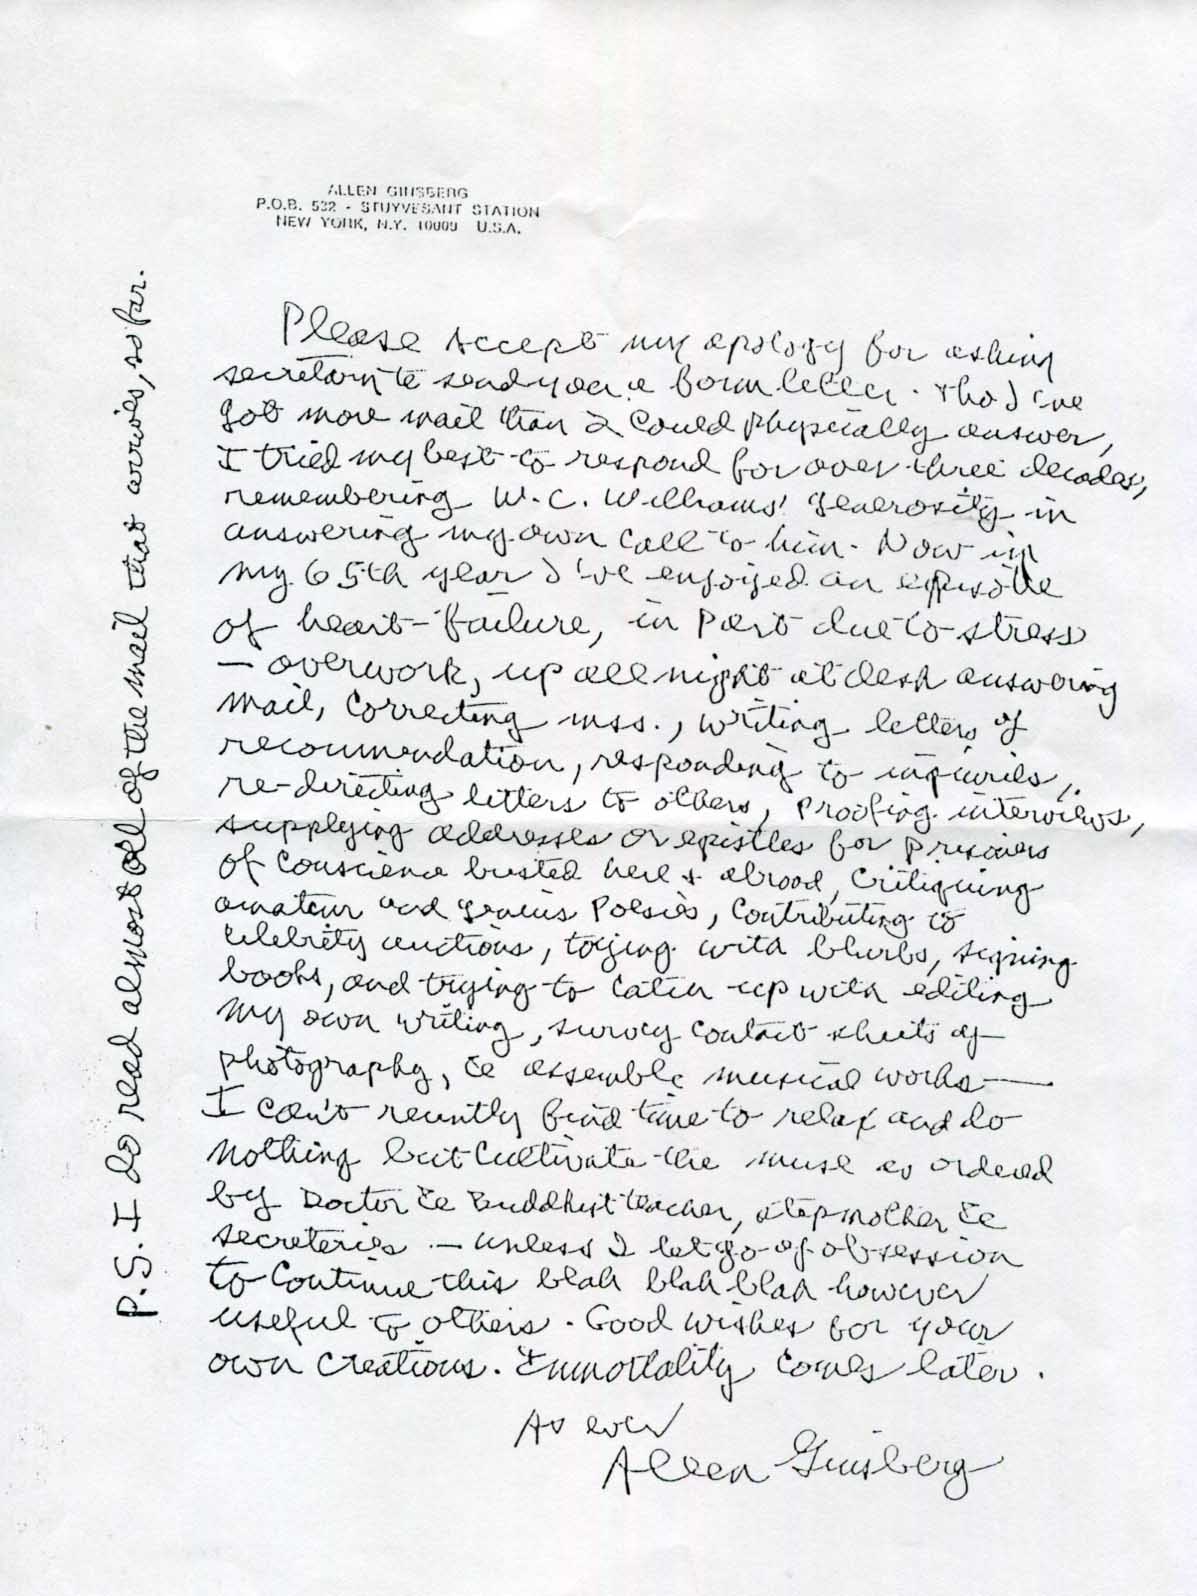 ALLEN GINSBERG
P.O.B. 532 - STUYVESANT STATION
NEW YORK, N.Y. 10009 U.S.A.
Please accept my apology for asking
secretary to send you a form letter. Tho I've
got more mail than I could physically answer,
I tried my best to respond for over three decades,
remembering W.C. Williams' generosity in
answering my own call to him. Now in
my 65th year I've enjoyed an episode
of heart-failure, in part due to stress
— overwork, up all night at desk answering
mail, correcting mss., writing letters of
recommendation, responding to inquiries,
re-directing letters to others, proofing interviews,
supplying addresses or epistles for prisoners
of conscience busted here & abroad, critiquing
amateur and genius poesies, contributing to
celebrity auctions, toying with blurbs, signing
books, and trying to catch up with editing
my own writing, survey contact sheets of
photography, & assemble musical works —
I can't recently find time to relax and do
nothing but cultivate the muse as ordered
by Doctor & Buddhist teacher, stepmother &
secreteries — unless I let go of obsession
to continue this blah blah blah however
useful to others. Good wishes for your
own creations. Immortality comes later.
As ever
Allen Ginsberg
P.S. I do read almost all of the mail that arrives, so far.